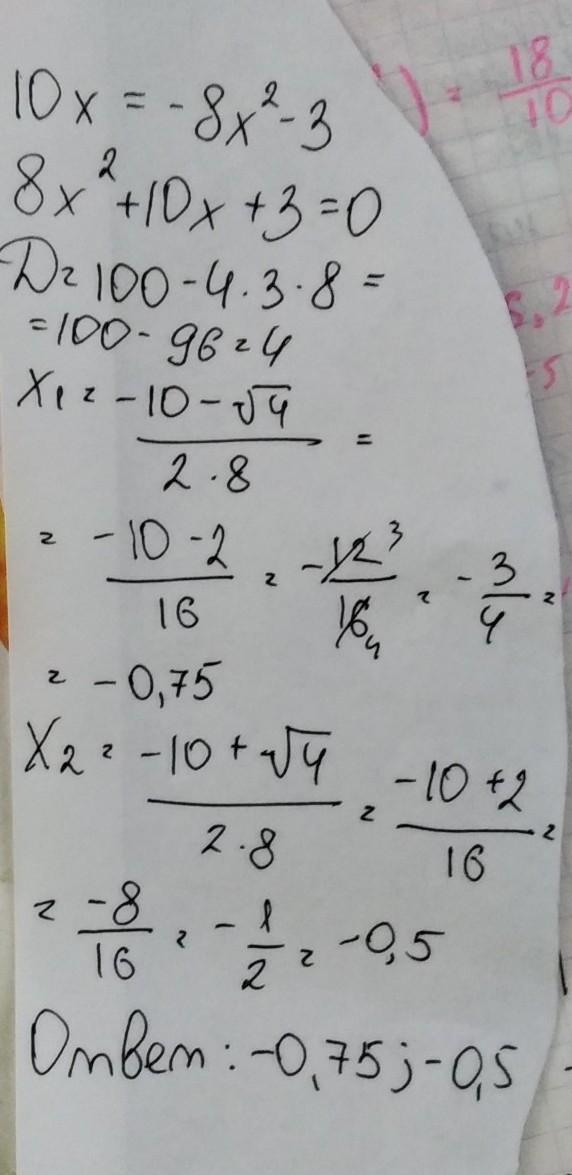 10x = -8x²-3
8x²+10x+3=0
D=100-4·3·8=
=100-96=4
x₁= (-10-√4)/(2·8) =
= (-10-2)/16 = -12³/16₄ = -3/4 =
= -0,75
x₂= (-10+√4)/(2·8) = (-10+2)/16 =
= -8/16 = -1/2 = -0,5
Ответ: -0,75; -0,5
) = 18/10